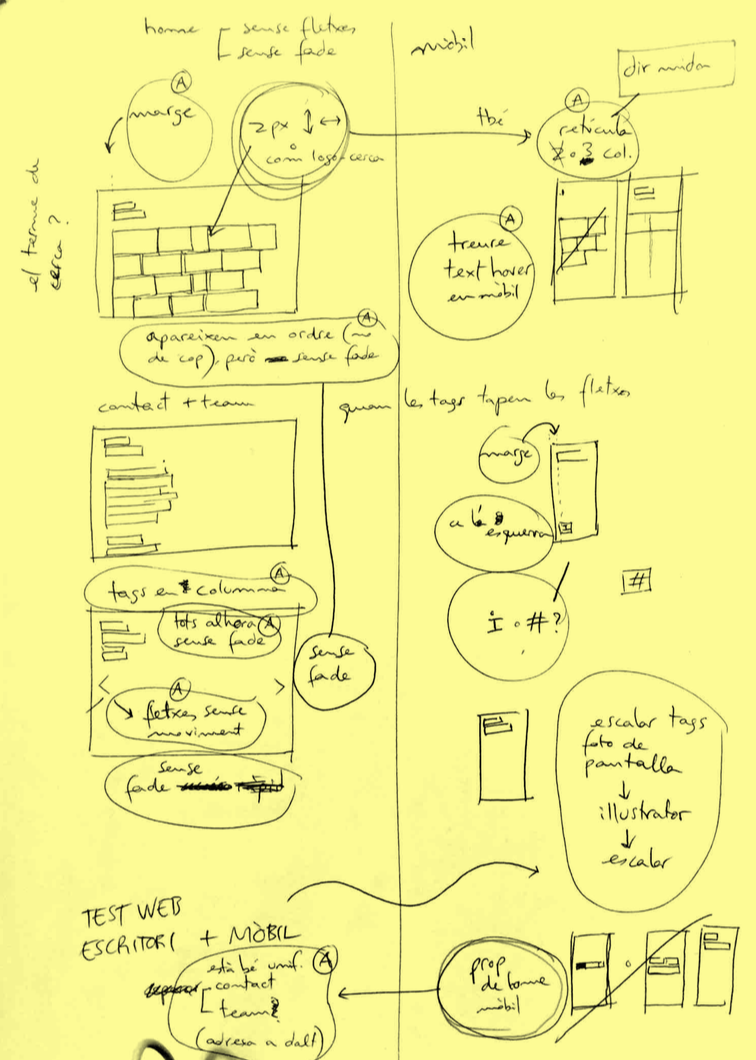 home
sense fletxes
sense fade
mòbil
dir mida
A
marge
2px ↓ ↔
o
com logo-cerca
tbé
A
retícula
2 o 3 col.
el terme de
cerca?
A
treure
text hover
en mòbil
A
apareixen en ordre (no
de cop), però sense fade
contact + team
quan les tags tapen les fletxes
marge
a la
esquerra
tags en columna
A
tots alhora A
sense fade
#
i o #?
sense
fade
A
fletxes sense
moviment
sense
fade
escalar tags
foto de
pantalla
↓
illustrator
↓
escalar
TEST WEB
ESCRITORI + MÒBIL
està bé unif. A
contact
team?
(adreça a dalt)
prop
de home
mòbil